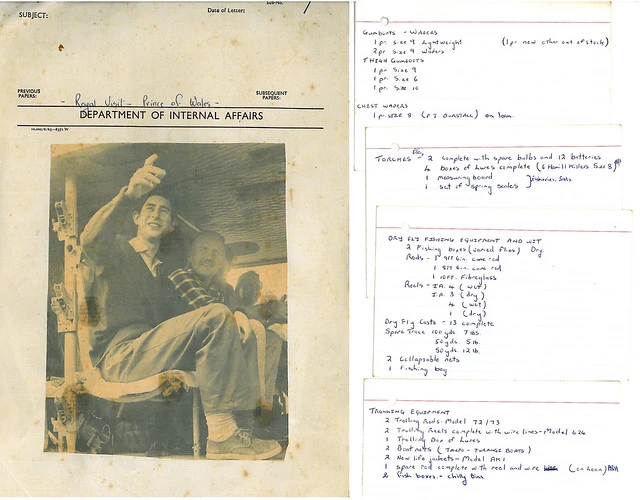 SUBJECT:
Date of Letter:
SUB-No.
1
PREVIOUS PAPERS:
SUBSEQUENT PAPERS:
- Royal Visit - Prince of Wales -
DEPARTMENT OF INTERNAL AFFAIRS
GUMBOOTS - WADERS
1 pr. size 9 Lightweight (1 pr. new other out of stock)
2 pr size 9 Waders
THIGH GUMBOOTS
1 pr. size 9
1 pr. size 6
1 pr. size 10
CHEST WADERS
1 pr. SIZE 8 (P.J. BURSTALL) on loan
TORCHES 2 complete with spare bulbs and 12 batteries
4 boxes of Lures complete (6 Hamill Killers Size 8)
1 measuring board
1 set of spring scales
DRY FLY FISHING EQUIPMENT AND WET
2 Fishing boxes (varied flies) Dry
Rods - 1 9ft 6in. cane rod
1 8ft 6in. cane rod
1 10ft. Fibreglass
Reels - I.A. 4 (wet)
I.A. 3 (dry)
4 (wet)
1 (dry)
Dry Fly Casts - 13 complete
Spare Trace 100 yds. 7 lbs.
50 yds. 5 lb.
50 yds. 12 lb.
2 Collapsable nets
1 Fishing bag
TROLLING EQUIPMENT
2 Trolling Rods - Model 72/73
2 Trolling Reels complete with wire lines - Model 626
1 Trolling Box of Lures
2 Boat nets (TAUPO - TURANGI BOATS)
2 New life jackets - Model AK1
1 spare rod complete with reel and wire (on loan)
2 Fish boxes - chilly bins